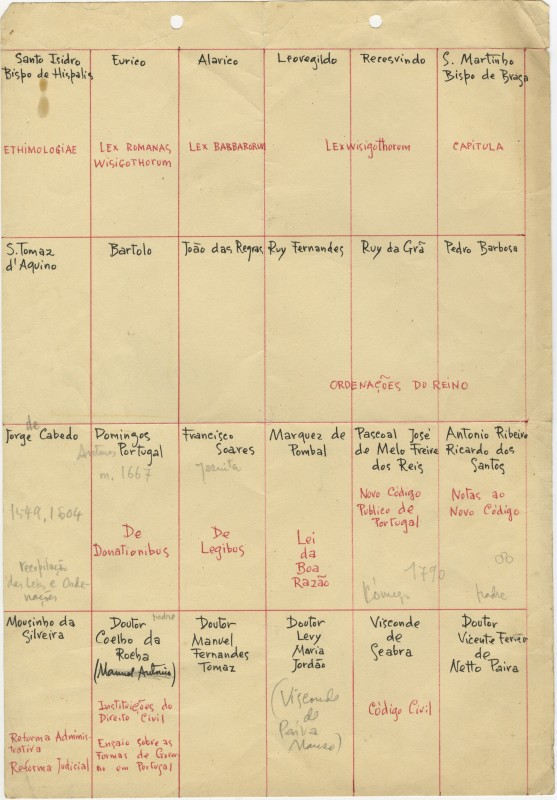 Santo Isidro
Bispo de Hispalis
ETHIMOLOGIAE
Eurico
LEX ROMANAS
WISIGOTHORUM
Alarico
LEX BABBARORUM
Leovegildo
Recesvindo
LEX WISIGOTHORUM
S. Martinho
Bispo de Braga
CAPITULA
S. Tomaz
d'Aquino
Bartolo
João das Regras
Ruy Fernandes
Ruy da Grã
Pedro Barbosa
ORDENAÇÕES DO REINO
de
Jorge Cabedo
1549, 1604
recopilação
das Leis e Orde-
nações
Domingos
Antunes Portugal
m. 1667
De
Donationibus
Francisco
Soares
jesuita
De
Legibus
Marquez de
Pombal
Lei
da
Boa
Razão
Pascoal José
de Melo Freire
dos Reis
Novo Código
Público de
Portugal
1790
Antonio Ribeiro
Ricardo dos
Santos
Notas ao
Novo Código
padre
Mousinho da
Silveira
Reforma Adminis-
trativa
Reforma Judicial
Doutor padre
Coelho da
Rocha
(Manuel António)
Instituições do
Direito Civil
Ensaio sobre as
Formas de Gover
no em Portugal
Doutor
Manuel
Fernandes
Tomaz
Doutor
Levy
Maria
Jordão
(Visconde
de
Paiva
Manso)
Visconde
de
Seabra
Código Civil
Doutor
Vicente Ferrer
de
Netto Paiva